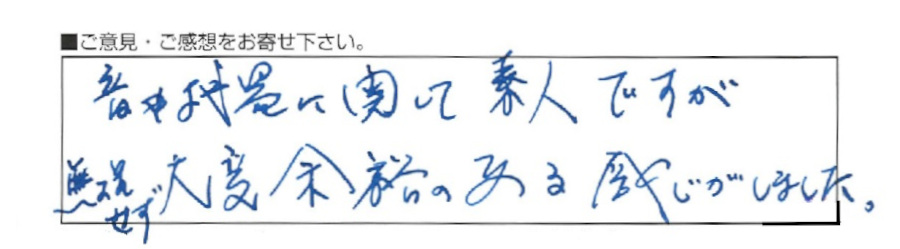 ■ご意見・ご感想をお寄せ下さい。
音響機器に関して素人ですが
無理せず大変余裕のある感じがしました。